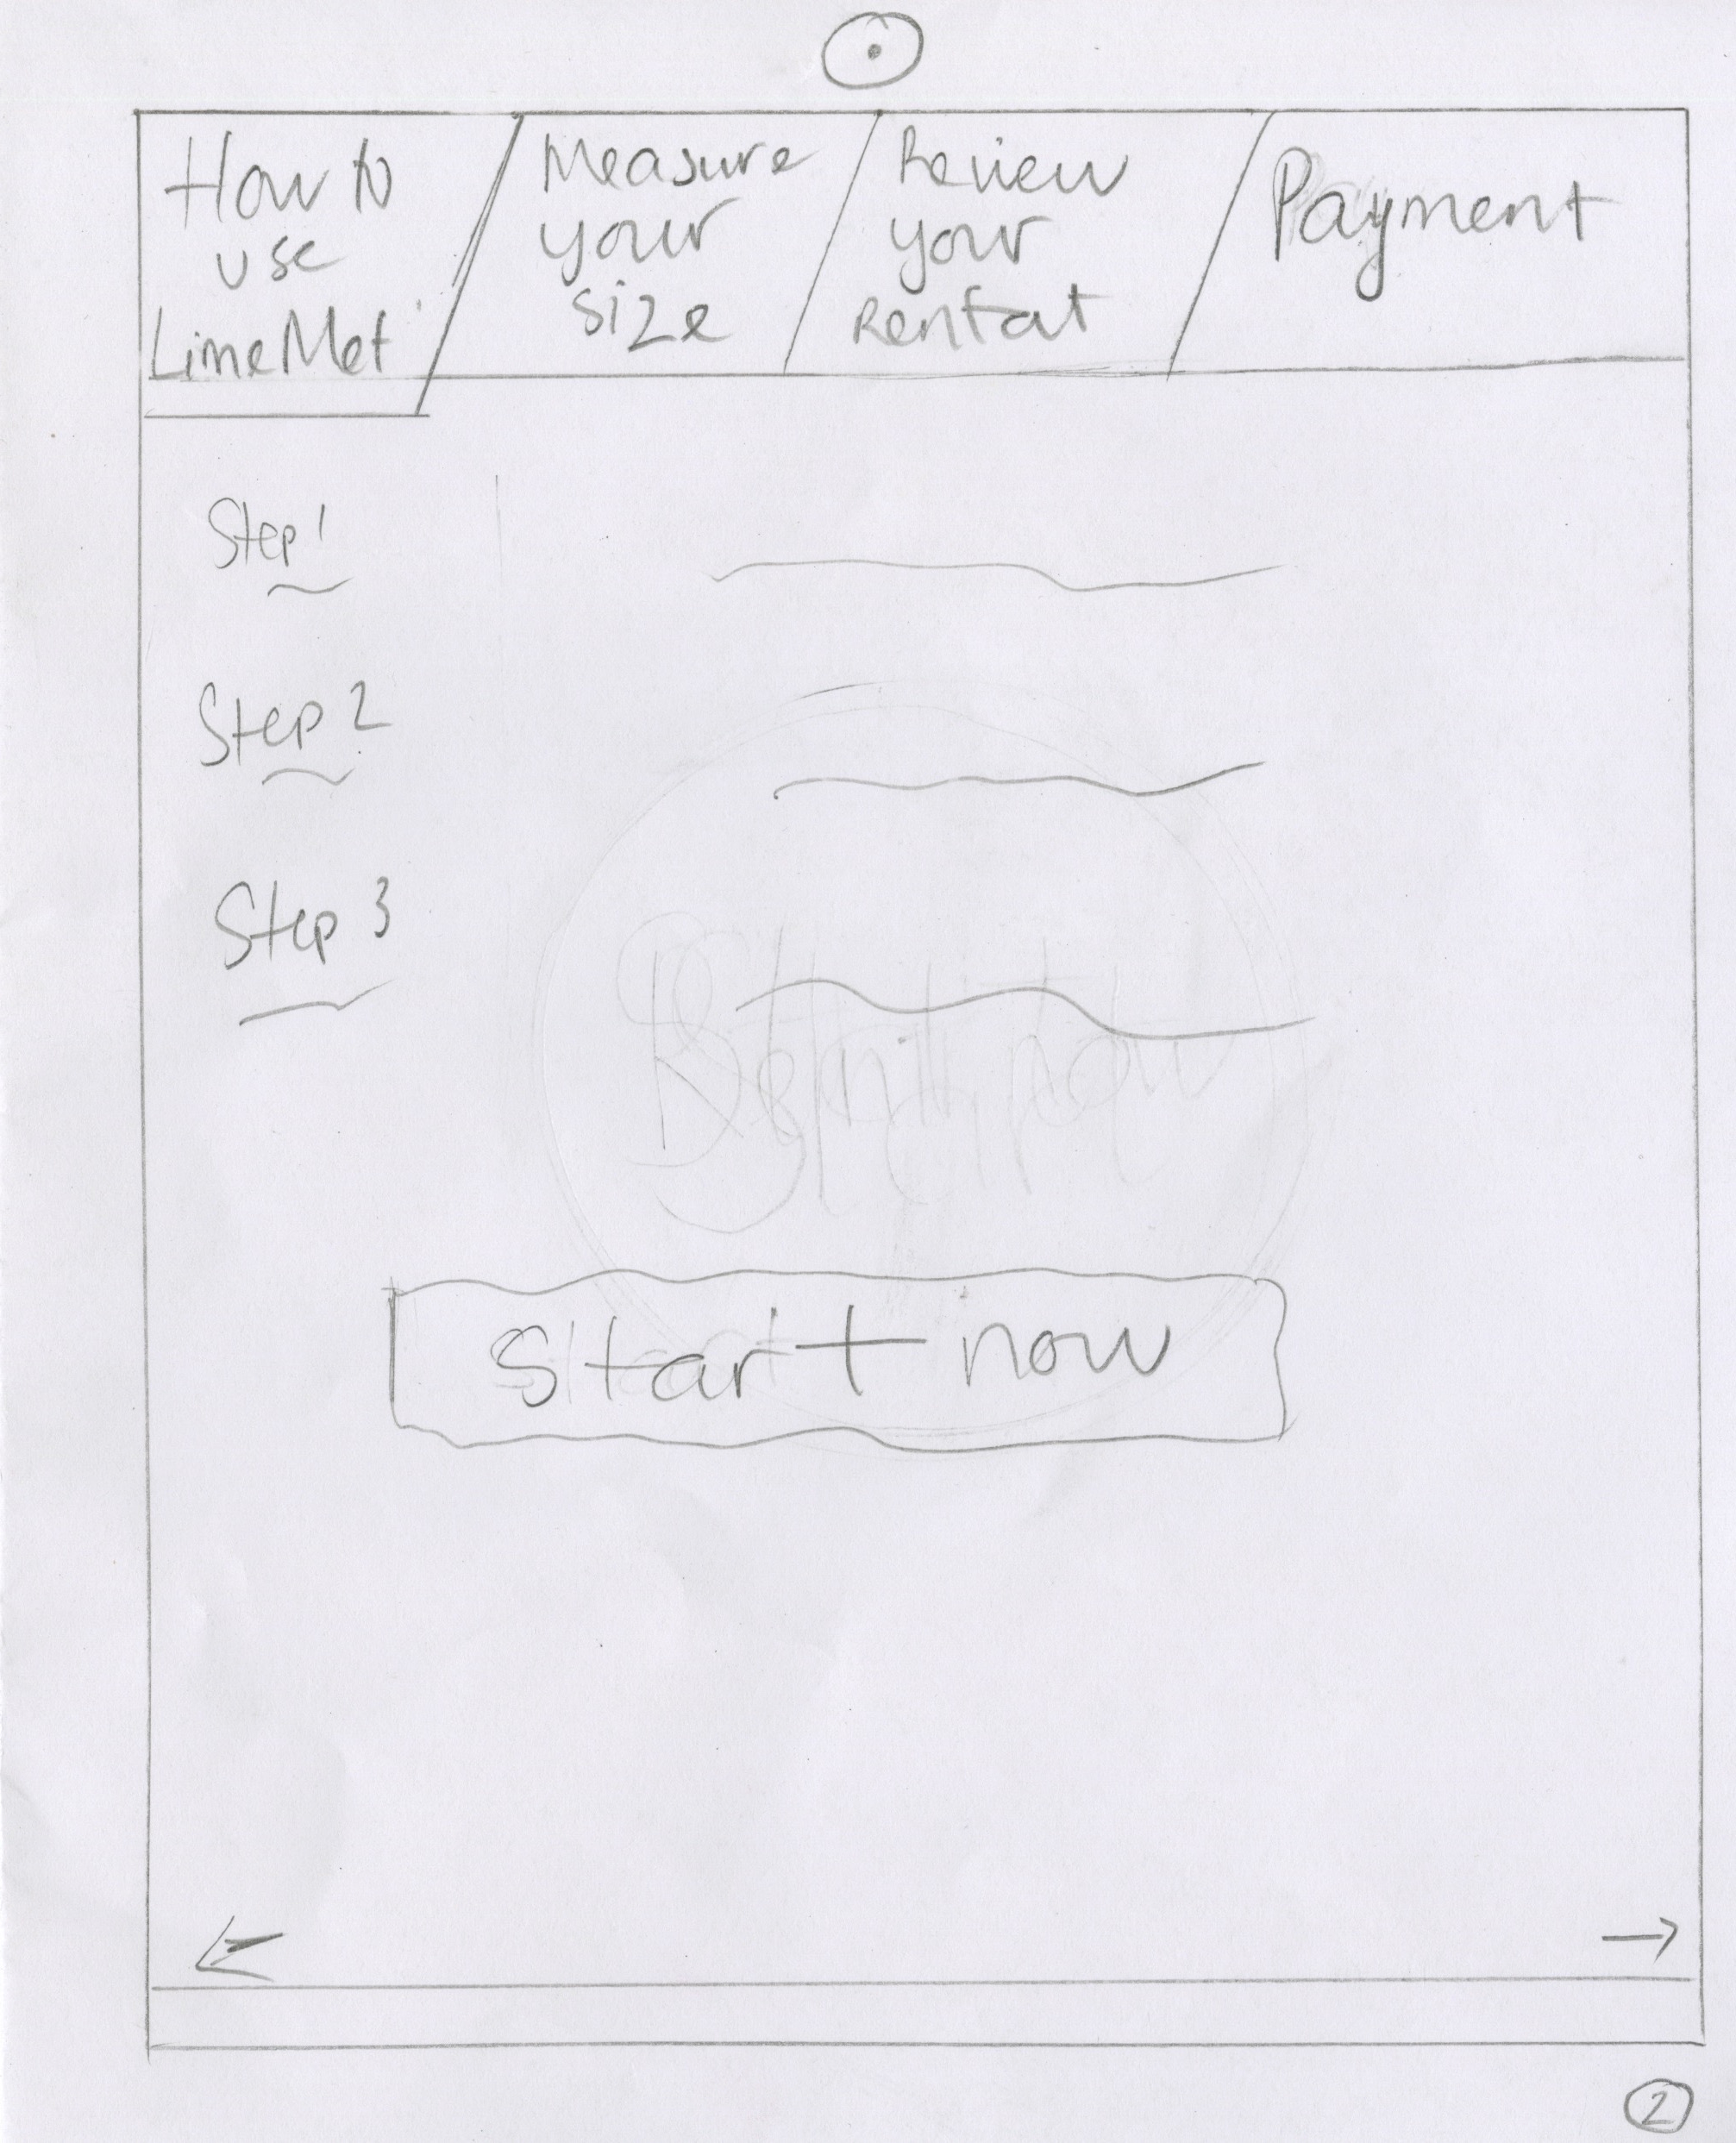 How to
use
LimeMet
Measure
your
size
Review
your
Rental
Payment
Step 1
Step 2
Step 3
Start now
2